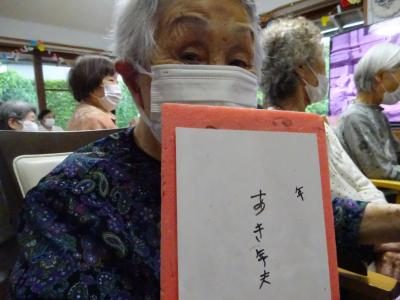 年
あき年夫